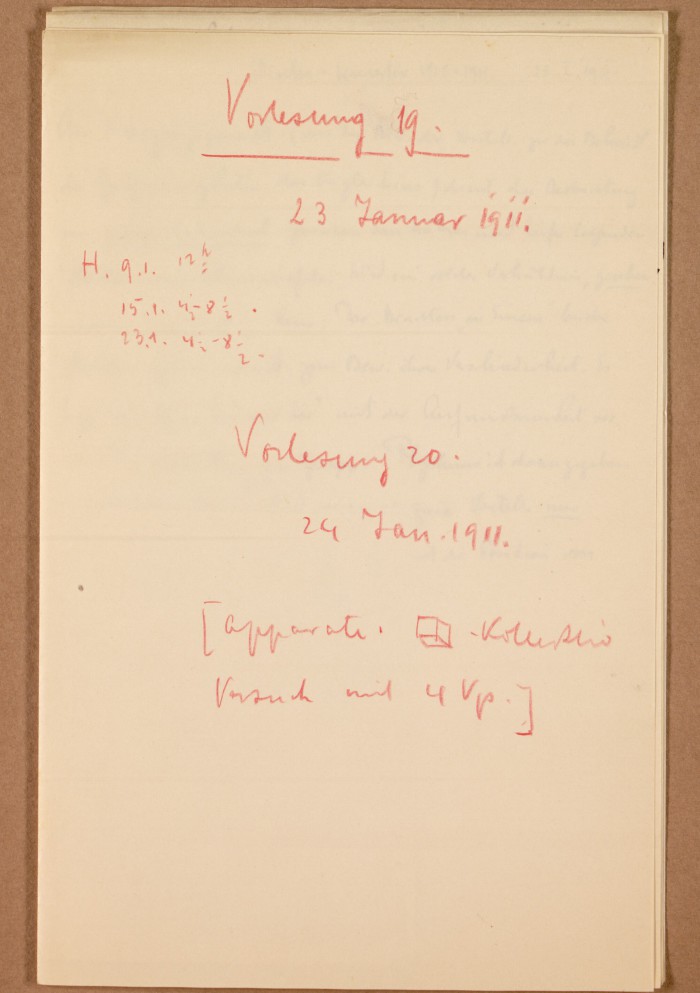 Vorlesung 19.
23 Januar 1911.
H. 9.1. 12h
15.1. 4½-8½.
23.1. 4½-8½.
Vorlesung 20.
24 Jan. 1911.
[Apparate.
Versuch mit 4 Vp.]